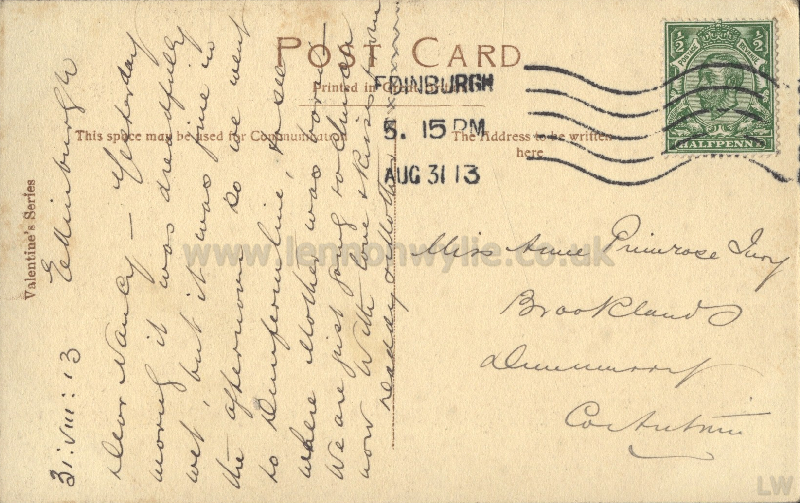 POST CARD
Printed in Great Britain
This space may be used for Communication
The Address to be written
here
Valentine's Series
EDINBURGH
5. 15 PM
AUG 31 13
½ ½
POSTAGE
HALFPENNY
Edinburgh
31:VIII:13
Dear Nancy — Yesterday
morning it was dreadfully
wet, but it was fine in
the afternoon so we went
to Dunfermline, to see
where Mother was born —
We are just going to Church
now With love & kisses from
Daddy & Mother
Miss Anne Primrose
Brooklands
Dunmurry
Co Antrim
www.lennonwylie.co.uk
LW